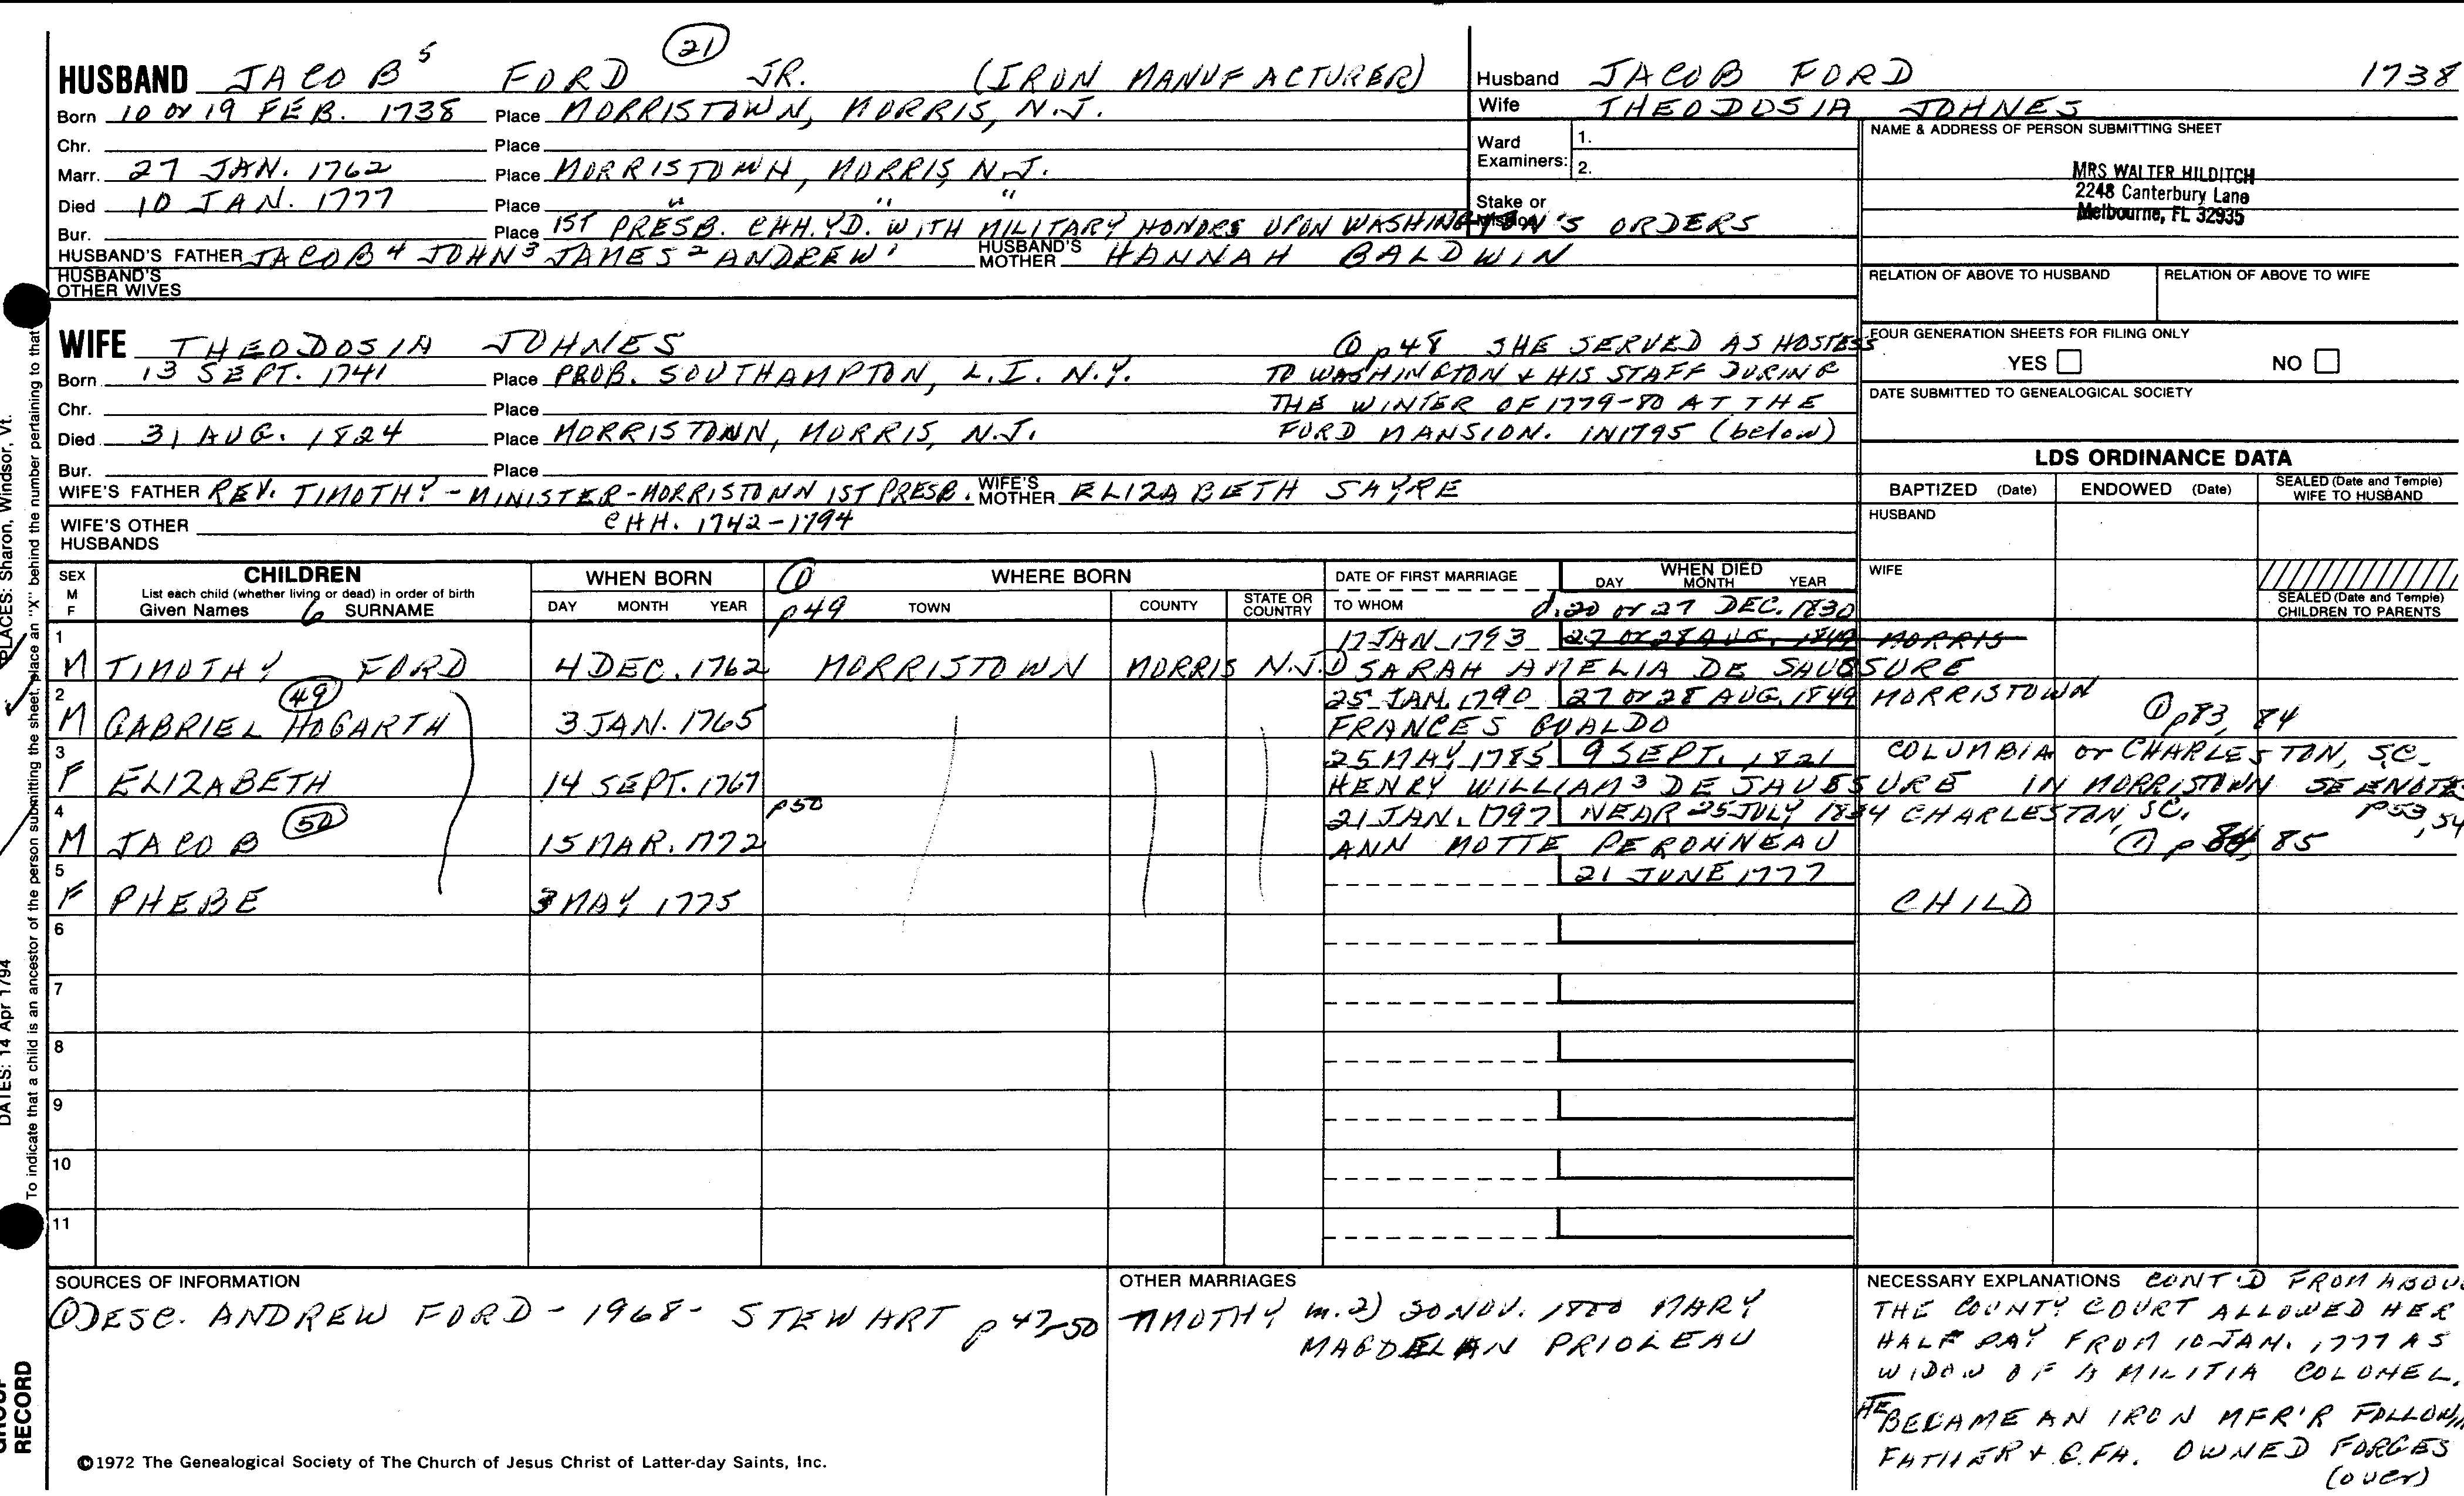 HUSBAND JACOB 5 FORD (21) JR. (IRON MANUFACTURER)
Born 10 or 19 FEB. 1738 Place MORRISTOWN, MORRIS, N.J.
Chr. Place
Marr. 27 JAN. 1762 Place MORRISTOWN, MORRIS, N.J.
Died 10 JAN. 1777 Place " " "
Bur. Place 1ST PRESB. CHH. YD. WITH MILITARY HONORS UPON WASHINGTON'S ORDERS
HUSBAND'S FATHER JACOB 4 JOHN 3 JAMES 2 ANDREW 1 HUSBAND'S MOTHER HANNAH BALDWIN
HUSBAND'S OTHER WIVES
Husband JACOB FORD 1738
Wife THEODOSIA JOHNES
Ward Examiners: 1.
2.
Stake or Mission
NAME & ADDRESS OF PERSON SUBMITTING SHEET
MRS WALTER HILDITCH
2248 Canterbury Lane
Melbourne, FL 32935
RELATION OF ABOVE TO HUSBAND RELATION OF ABOVE TO WIFE
FOUR GENERATION SHEETS FOR FILING ONLY
YES NO
DATE SUBMITTED TO GENEALOGICAL SOCIETY
WIFE THEODOSIA JOHNES ① p48 SHE SERVED AS HOSTESS
Born 13 SEPT. 1741 Place PROB. SOUTHAMPTON, L.I. N.Y. TO WASHINGTON & HIS STAFF DURING
Chr. Place THE WINTER OF 1779-80 AT THE
Died 31 AUG. 1824 Place MORRISTOWN, MORRIS, N.J. FORD MANSION. IN 1795 (below)
Bur. Place
WIFE'S FATHER REV. TIMOTHY - MINISTER - MORRISTOWN 1ST PRESB. WIFE'S MOTHER ELIZABETH SAYRE
WIFE'S OTHER HUSBANDS CHH. 1742-1794
LDS ORDINANCE DATA
BAPTIZED (Date) ENDOWED (Date) SEALED (Date and Temple) WIFE TO HUSBAND
HUSBAND
WIFE
SEALED (Date and Temple) CHILDREN TO PARENTS
SEX M F CHILDREN WHEN BORN ① WHERE BORN DATE OF FIRST MARRIAGE WHEN DIED
List each child (whether living or dead) in order of birth DAY MONTH YEAR
Given Names 6 SURNAME DAY MONTH YEAR p49 TOWN COUNTY STATE OR COUNTRY TO WHOM d. 20 or 27 DEC. 1830
1 17 JAN 1793 27 or 28 AUG. 1849 MORRIS
M TIMOTHY FORD 4 DEC. 1762 MORRISTOWN MORRIS N.J. ① SARAH AMELIA DE SAUSSURE
2 (49) 25 JAN. 1790 27 or 28 AUG. 1849 MORRISTOWN
M GABRIEL HOGARTH 3 JAN. 1765 FRANCES GUALDO ① p83, 84
3 25 MAY 1785 9 SEPT. 1821 COLUMBIA or CHARLESTON, S.C.
F ELIZABETH 14 SEPT. 1767 HENRY WILLIAM 3 DE SAUSSURE IN MORRISTOWN SEE NOTES
4 (50) p50 21 JAN. 1797 NEAR 25 JULY 1834 CHARLESTON, S.C. p53, 54
M JACOB 15 MAR. 1772 ANN MOTTE PERONNEAU ① p 84, 85
5 21 JUNE 1777
F PHEBE 3 MAY 1775 CHILD
6
7
8
9
10
11
SOURCES OF INFORMATION
① DESC. ANDREW FORD - 1968 - STEWART p 47-50
OTHER MARRIAGES
TIMOTHY m. 2) 30 NOV. 1800 MARY
MAGDELAN PRIOLEAU
NECESSARY EXPLANATIONS CONT'D FROM ABOVE
THE COUNTY COURT ALLOWED HER
HALF PAY FROM 10 JAN. 1777 AS
WIDOW OF A MILITIA COLONEL.
HE BECAME AN IRON MFR'R FOLLOWING
FATHER & G.FA. OWNED FORGES
(over)
©1972 The Genealogical Society of The Church of Jesus Christ of Latter-day Saints, Inc.
PLACES: Sharon, Windsor, Vt.
DATES: 14 Apr 1794
To indicate that a child is an ancestor of the person submitting the sheet, place an "X" behind the number pertaining to that
GROUP
RECORD